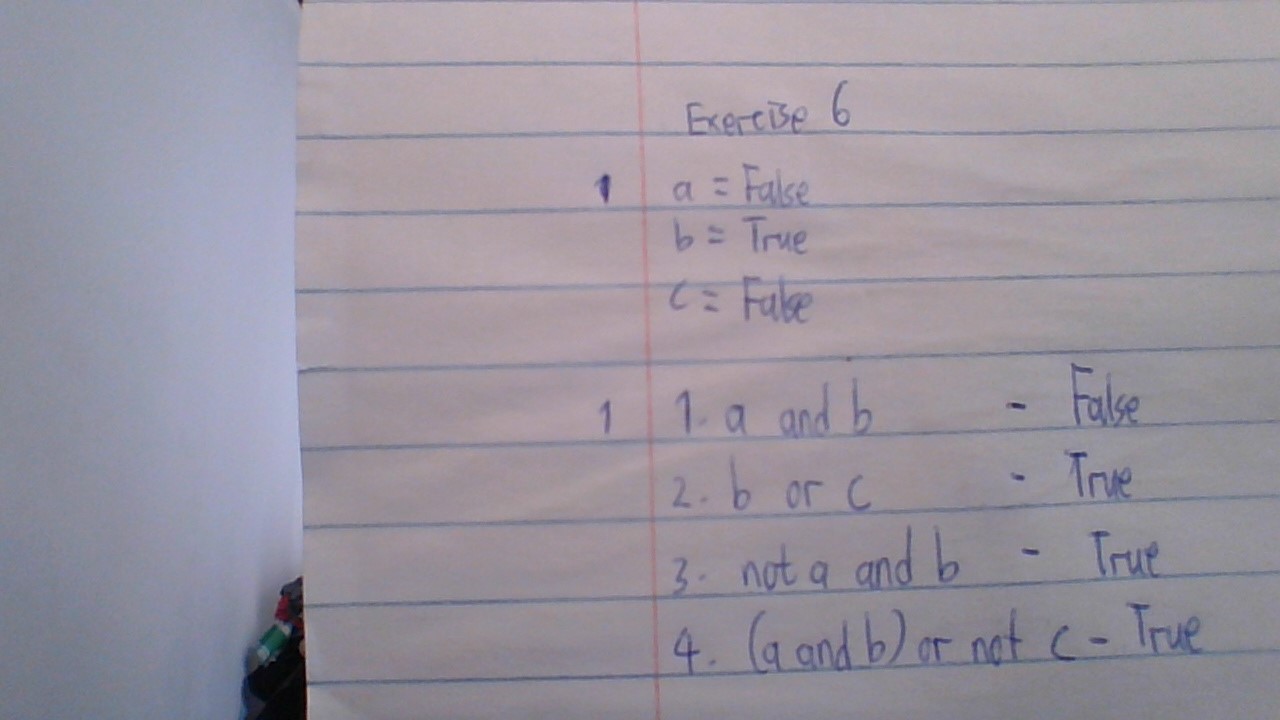 Exercise 6
1 a = False
b = True
c = False
1 1. a and b - False
2. b or c - True
3. not a and b - True
4. (a and b) or not c - True